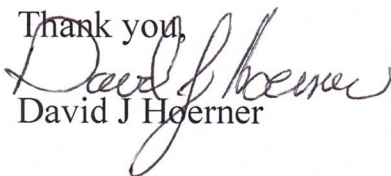 Thank you,
David J Hoerner
David J Hoerner